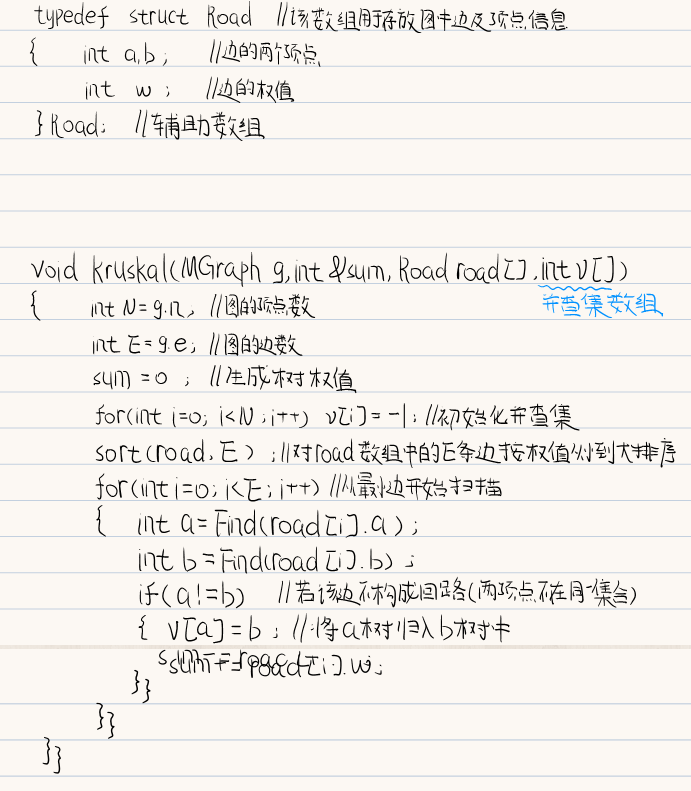 typedef struct Road //该数组用于存放图中边及顶点信息
{ int a,b; //边的两个顶点
int w; //边的权值
}Road; //辅助数组
void kruskal(MGraph g,int &sum, Road road[], int v[])
{ int N=g.n; //图的顶点数
并查集数组
int E=g.e; //图的边数
sum=0; //生成树权值
for(int i=0; i<N; i++) v[i]=-1; //初始化并查集
sort(road, E); //对road数组中的E条边按权值从小到大排序
for(int i=0; i<E; i++) //从最小边开始扫描
{ int a=Find(road[i].a);
int b=Find(road[i].b);
if(a!=b) //若该边不构成回路(两顶点不在同一集合)
{ v[a]=b; //将a树归入b树中
sum+=road[i].w;
}}
}}
}}